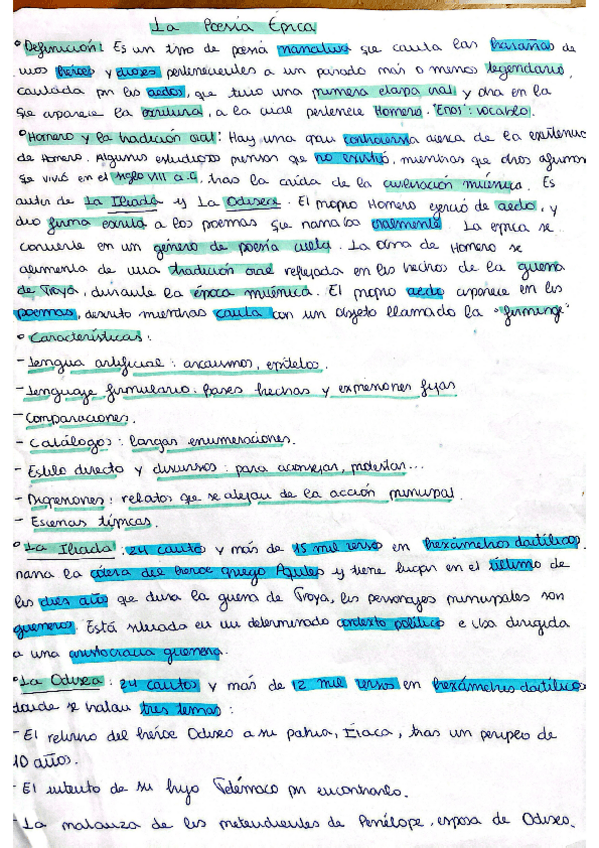 La Poesía Épica
° Definición: Es un tipo de poesía narrativa que canta las hazañas de
unos héroes y dioses pertenecientes a un pasado más o menos legendario,
cantada por los aedos, que tuvo una primera etapa oral y otra en la
que aparece la escritura, a la cual pertenece Homero. "Epos": vocablo.
° Homero y la tradición oral: Hay una gran controversia acerca de la existencia
de Homero. Algunos estudiosos piensan que no existió, mientras que otros afirman
que vivió en el siglo VIII a.C, tras la caída de la civilización micénica. Es
autor de La Ilíada y La Odisea. El propio Homero ejerció de aedo, y
dio forma escrita a los poemas que narraba oralmente. La épica se
convierte en un género de poesía culta. La obra de Homero se
alimenta de una tradición oral reflejada en los hechos de la guerra
de Troya, durante la época micénica. El propio aedo aparece en los
poemas, descrito mientras canta con un objeto llamado la "forminge"
° Características:
- Lengua artificial: arcaísmos, epítetos.
- Lenguaje formulario. Frases hechas y expresiones fijas
- Comparaciones.
- Catálogos: largas enumeraciones.
- Estilo directo y discursos: para aconsejar, protestar...
- Digresiones: relatos que se alejan de la acción principal.
- Escenas típicas.
° La Ilíada: 24 cantos y más de 15 mil versos en hexámetros dactílicos.
narra la cólera del héroe griego Aquiles y tiene lugar en el último de
los diez años que dura la guerra de Troya, los personajes principales son
guerreros. Está situada en un determinado contexto político e iba dirigida
a una aristocracia guerrera.
° La Odisea: 24 cantos y más de 12 mil versos en hexámetros dactílicos
donde se tratan tres temas:
- El retorno del héroe Odiseo a su patria, Ítaca, tras un periplo de
10 años.
- El intento de su hijo Telémaco por encontrarlo.
- La matanza de los pretendientes de Penélope, esposa de Odiseo.